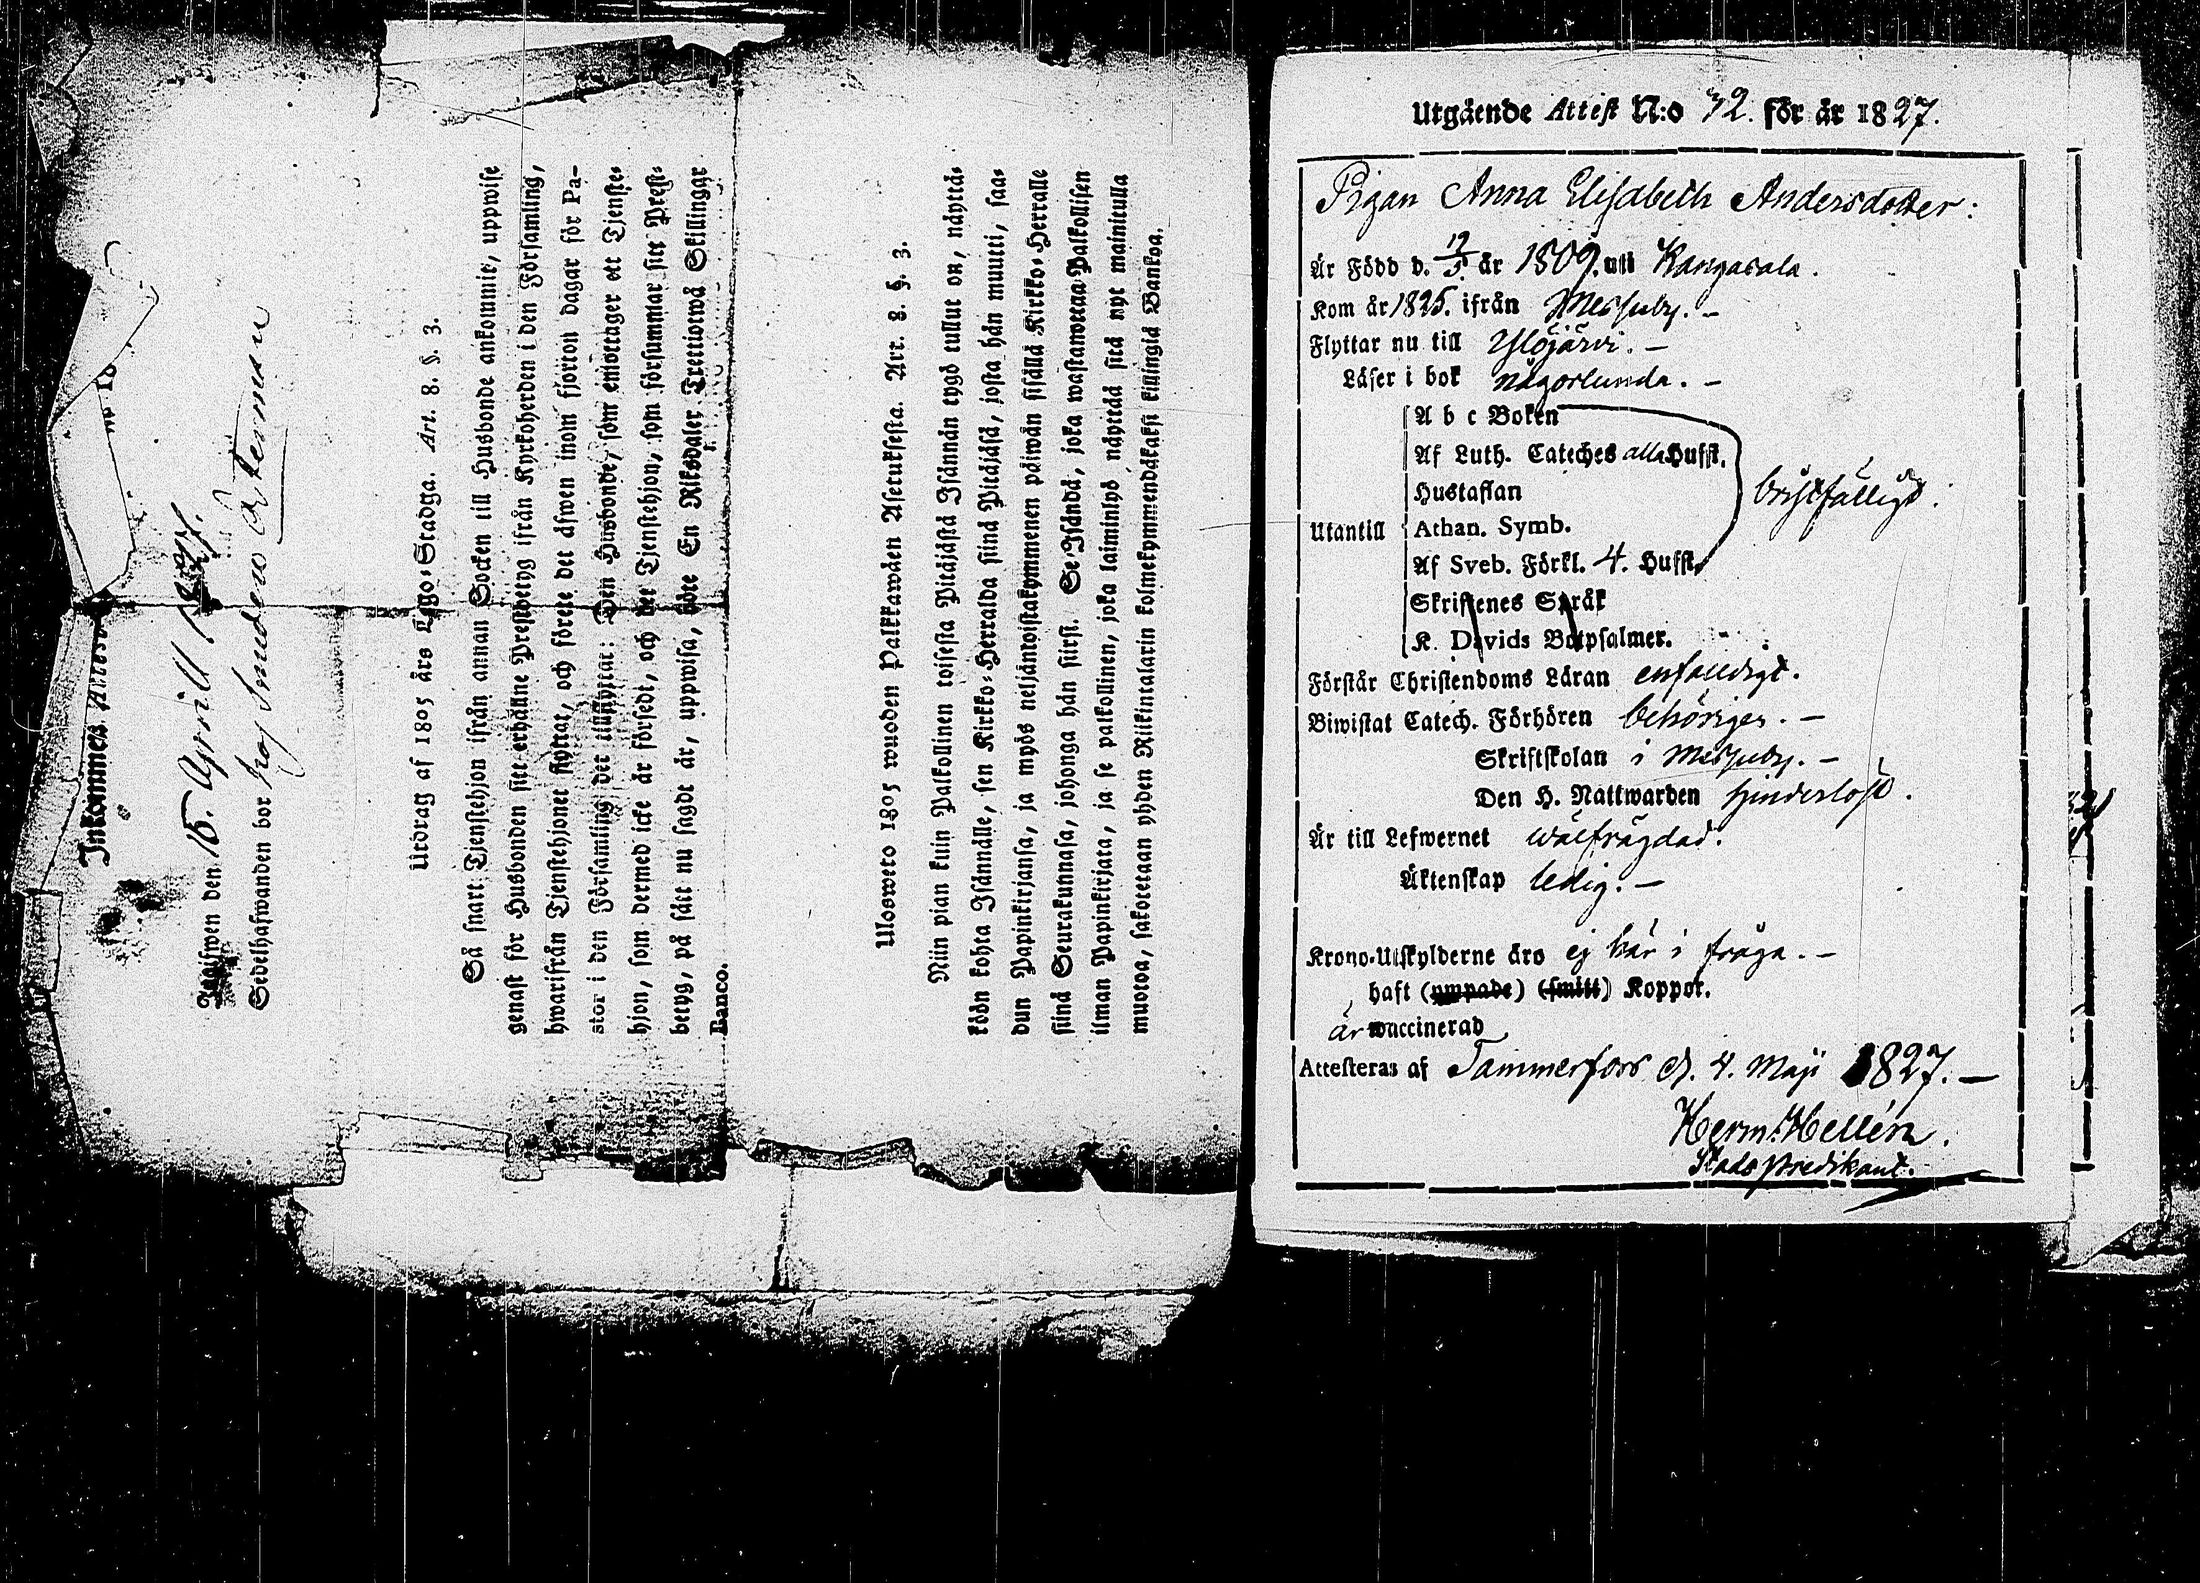 Inkommen Attest
den 15. Aprill 1827.
Sedelhafwanden bor hos Smeden Åkerman
Utdrag af 1805 års Lego-Stadga. Art. 8. §. 3.
Så snart Tjenstehjon ifrån annan Socken till Husbonde ankommit, uppwise
genast för Husbonden sitt erhållne Prestbetyg ifrån Kyrkoherden i den Församling,
hwarifrån Tjenstehjonet flyttat, och förete det äfwen inom fjorton dagar för Pa-
stor i den Församling det tillflyttat: Den Husbonde, som emottager ett Tjenste-
hjon, som dermed icke är försedt, och det Tjenstehjon, som försummar sitt Prest-
betyg, på sätt nu sagdt är, uppwisa, böte En Riksdaler Trettiotwå Skillingar
Banco.
Ulosweto 1805 wuoden Palkkawäen Asetuksesta. Art. 8. §. 3.
Niin pian kuin Palkollinen toisesta Pitäjästä Isännän tygö tullut on, näyttä-
köön kohta Isännälle, sen Kirkko-Herralda siinä Pitäjäsä, josta hän muutti, saa-
dun Papinkirjansa, ja myös neljäntoistakymmenen päiwän sisällä Kirkko-Herralle
siinä Seurakunnasa, johonga hän siirsi. Se Isändä, joka wastanottaa Palkollisen
ilman Papinkirjata, ja se palkollinen, joka laiminlyö näyttää sitä nyt mainitulla
muotoa, sakotetaan yhden Riikintalarin kolmekymmendäkaksi killingiä Bankoa.
Utgående Attest N:o 42. för år 1827.
Pigan Anna Elisabeth Andersdotter:
Är Född d. 12/5. år 1809. uti Kangasala.
Kom år 1825. ifrån Messuby. -
Flyttar nu till Ylöjärvi. -
Läser i bok någorlunda. -
A b c Boken
Af Luth. Cateches alla Hufst.
Hustaflan
bristfälligt:
Utantill Athan. Symb.
Af Sveb. Förkl. 4. Hufst.
Skriftenes Språk
K. Davids Botpsalmer.
Förstår Christendoms Läran enfalldigt.
Biwistat Catech. Förhören behörigen. -
Skriftskolan i Messuby. -
Den H. Nattwarden hinderlöst.
Är till Lefwernet wälfrägdad.
Äktenskap ledig. -
Krono-Utskylderne äro ej här i fråga. -
haft (ympade) (smitt) Koppor.
är vaccinerad
Attesteras af Tammerfors d. 4. Maji 1827. -
Herm: Hellén.
Stads predikant.